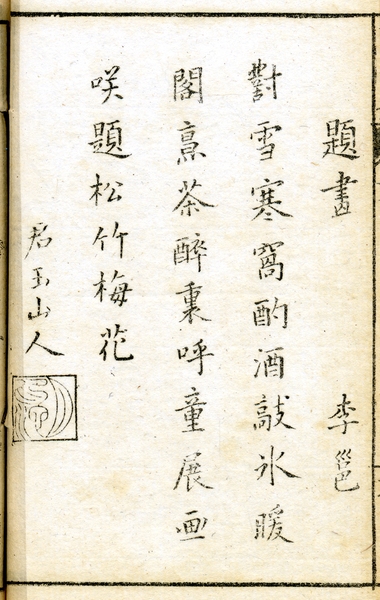 題畫 李邕
對雪寒窩酌酒敲氷暖
閣烹茶醉裏呼童展画
咲題松竹梅花
君玉山人